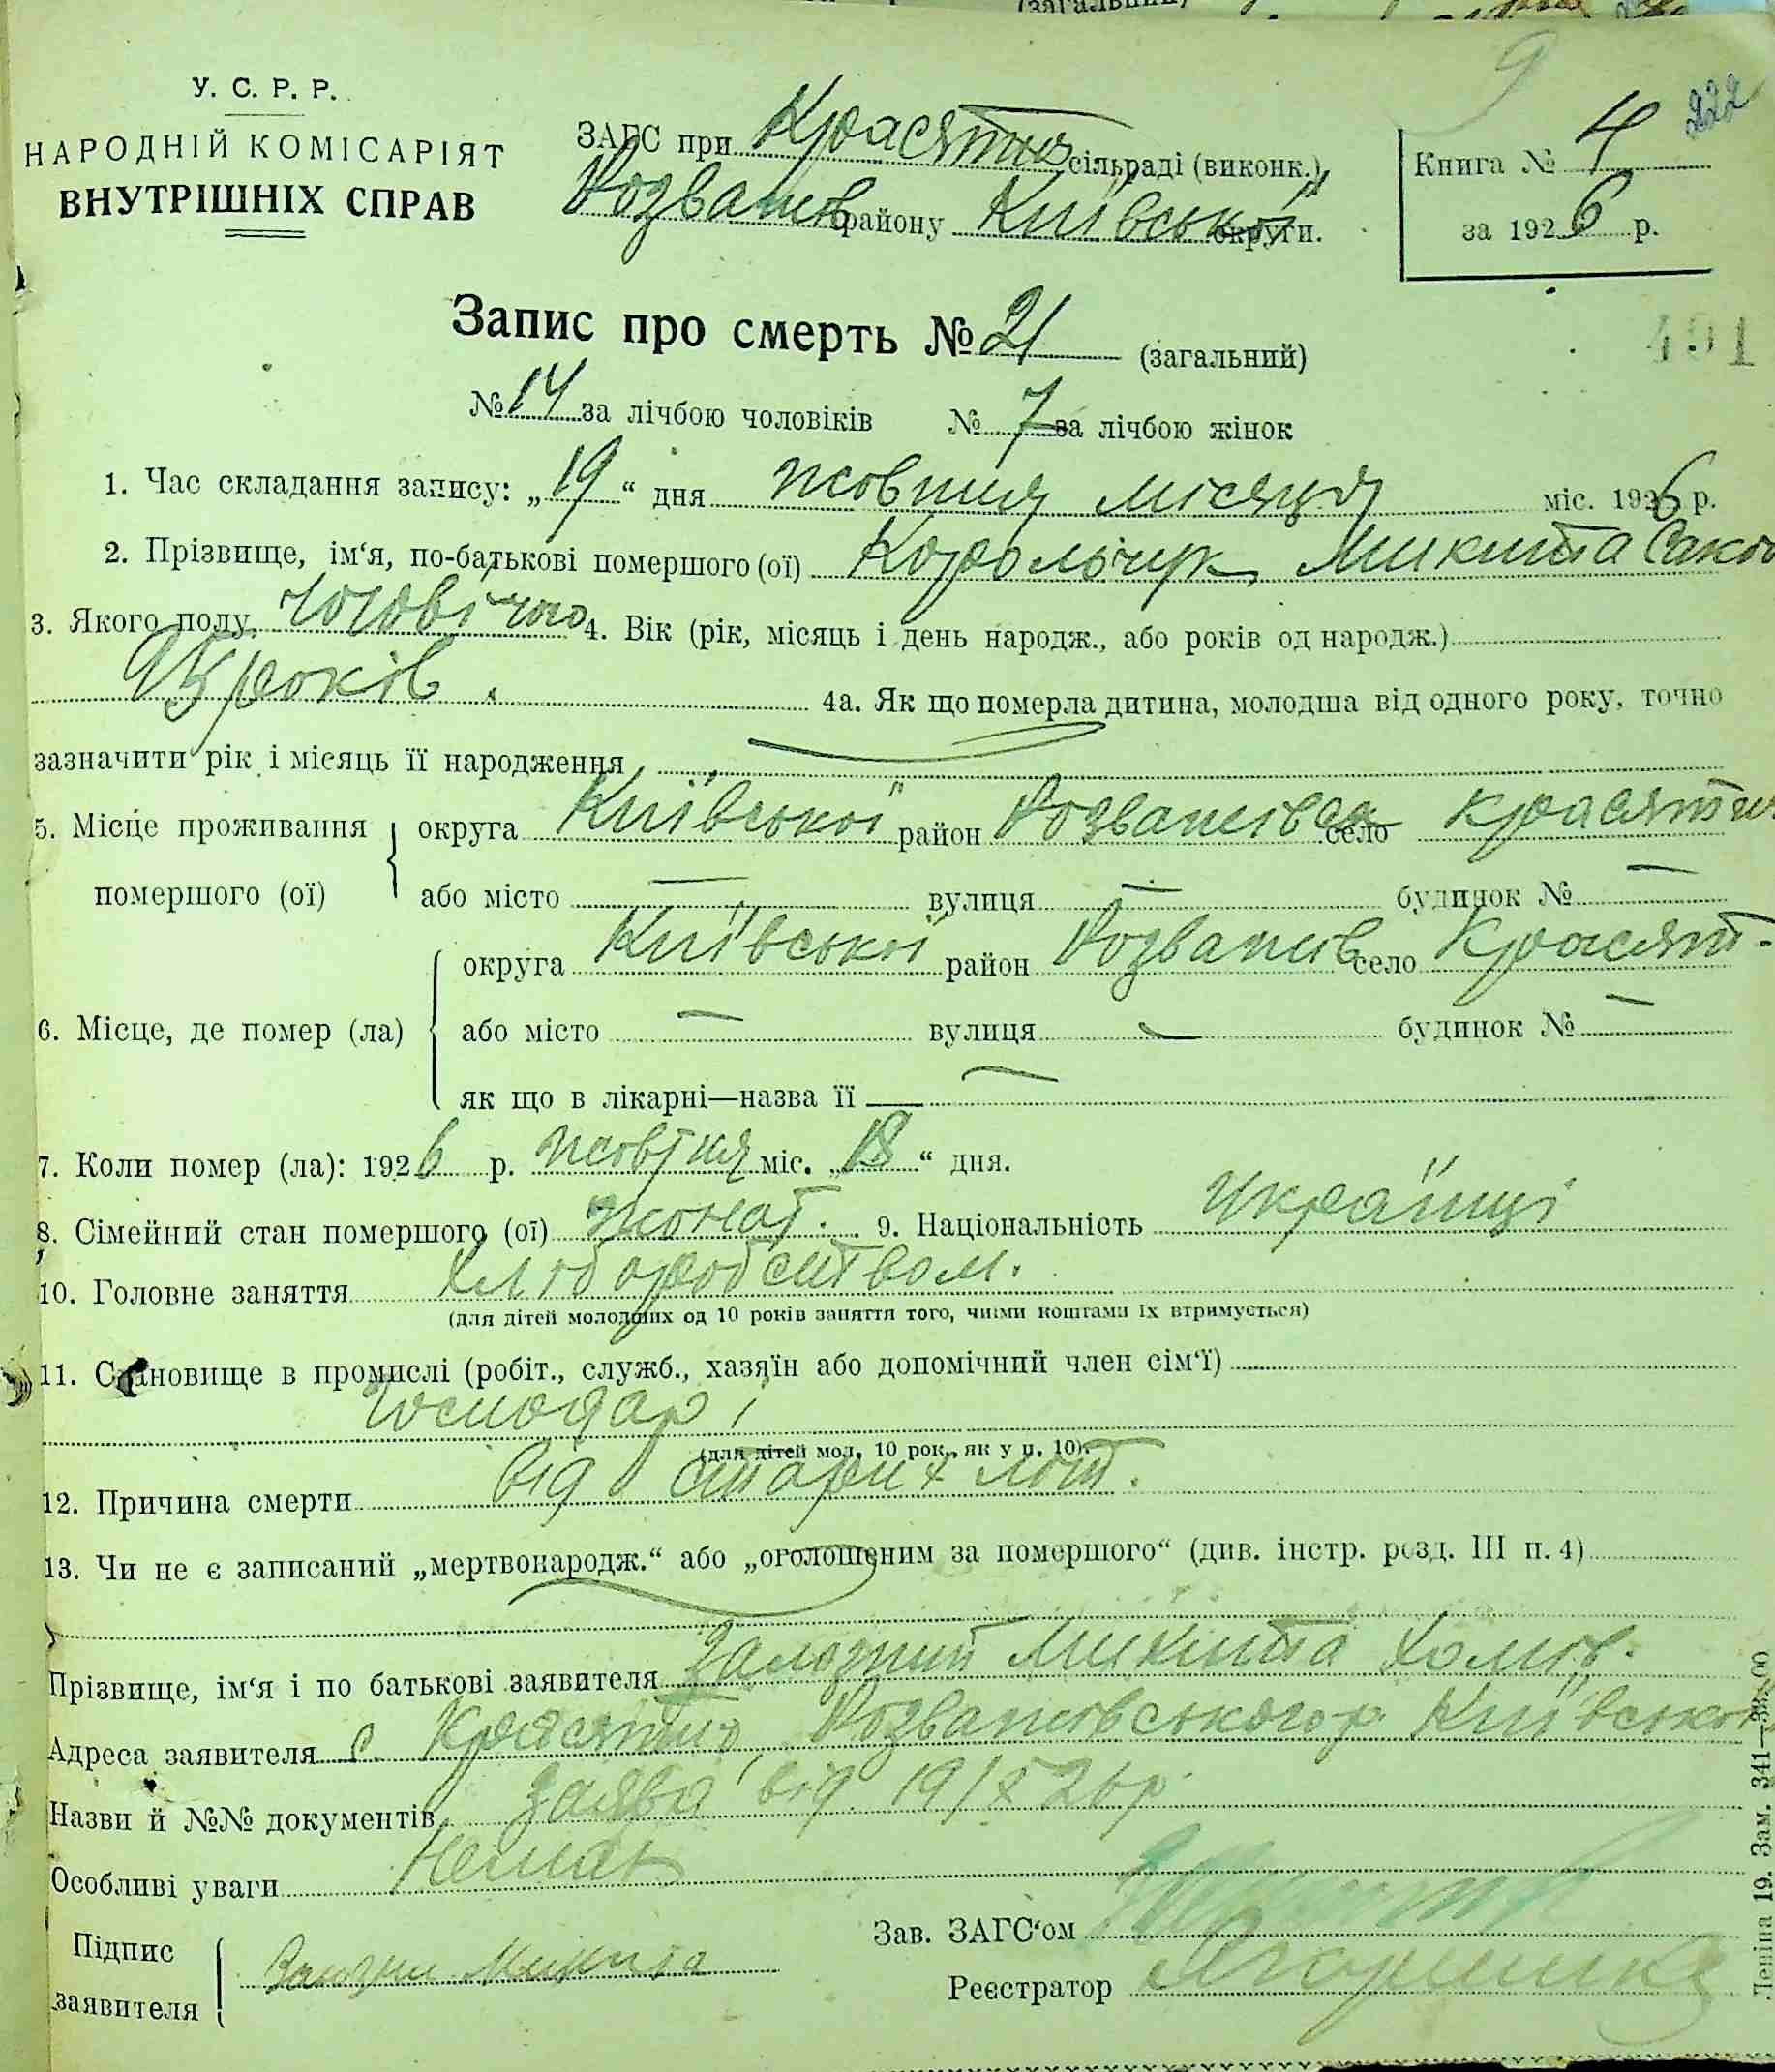 (загальний)
9
222
У. С. Р. Р.
НАРОДНІЙ КОМІСАРІЯТ
ВНУТРІШНІХ СПРАВ
ЗАГС при Красятиц сільраді (виконк.)
Розважів району Київської округи.
Книга № 4
за 1926 р.
Запис про смерть № 21 (загальний)
491
№ 14 за лічбою чоловіків № 7 за лічбою жінок
1. Час складання запису: „19“ дня жовтня місяця міс. 1926 р.
2. Прізвище, ім‘я, по-батькові помершого (ої) Корольчук Микита
3. Якого полу чоловічого 4. Вік (рік, місяць і день народж., або років од народж.)
років. 4а. Як що померла дитина, молодша від одного року, точно
зазначити рік і місяць її народження
5. Місце проживання помершого (ої) округа Київської район Розважівськ село Красятич
або місто — вулиця — будинок № —
6. Місце, де помер (ла) округа Київської район Розважів село Красят-
або місто — вулиця — будинок № —
як що в лікарні—назва її —
7. Коли помер (ла): 1926 р. жовтня міс. „18“ дня.
8. Сімейний стан помершого (ої) жонат. 9. Національність Українці
10. Головне заняття Хліборобством.
(для дітей молодших од 10 років заняття того, чиїми коштами їх втримується)
11. Становище в промислі (робіт., служб., хазяїн або допомічний член сім‘ї)
Господар
(для дітей мол. 10 рок., як у п. 10).
12. Причина смерти від старих літ.
13. Чи не є записаний „мертвонародж.“ або „оголошеним за помершого“ (див. інстр. розд. III п. 4)
Прізвище, ім‘я і по батькові заявителя Залозний Микита Хомів.
Адреса заявителя с. Красятич, Розважівського р Київської
Назви й №№ документів заява від 19/X 26 р.
Особливі уваги Немає
Підпис заявителя Микита
Зав. ЗАГС‘ом
Реєстратор
Леніна 19. Зам. 341—33.00